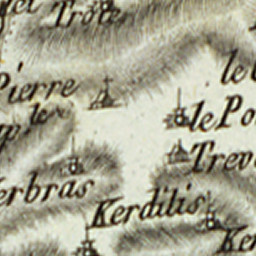 Trote
Pierre
le
le Po
Trev
erbras
Kerdilis
Ke